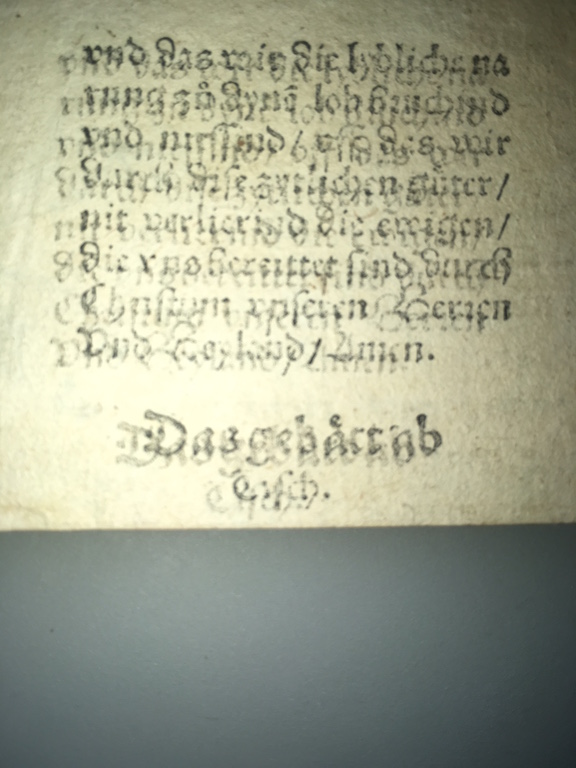 vnd das wir die lybliche na
rung zů dynē lob bruchind
vnd niessind / vff das wir
durch dise zytlichen güter /
nit verlierind die ewigen /
die vns bereittet sind durch
Christum vnseren Herren
Vnd Heyland / Amen.
Das gebått ab
Tisch.